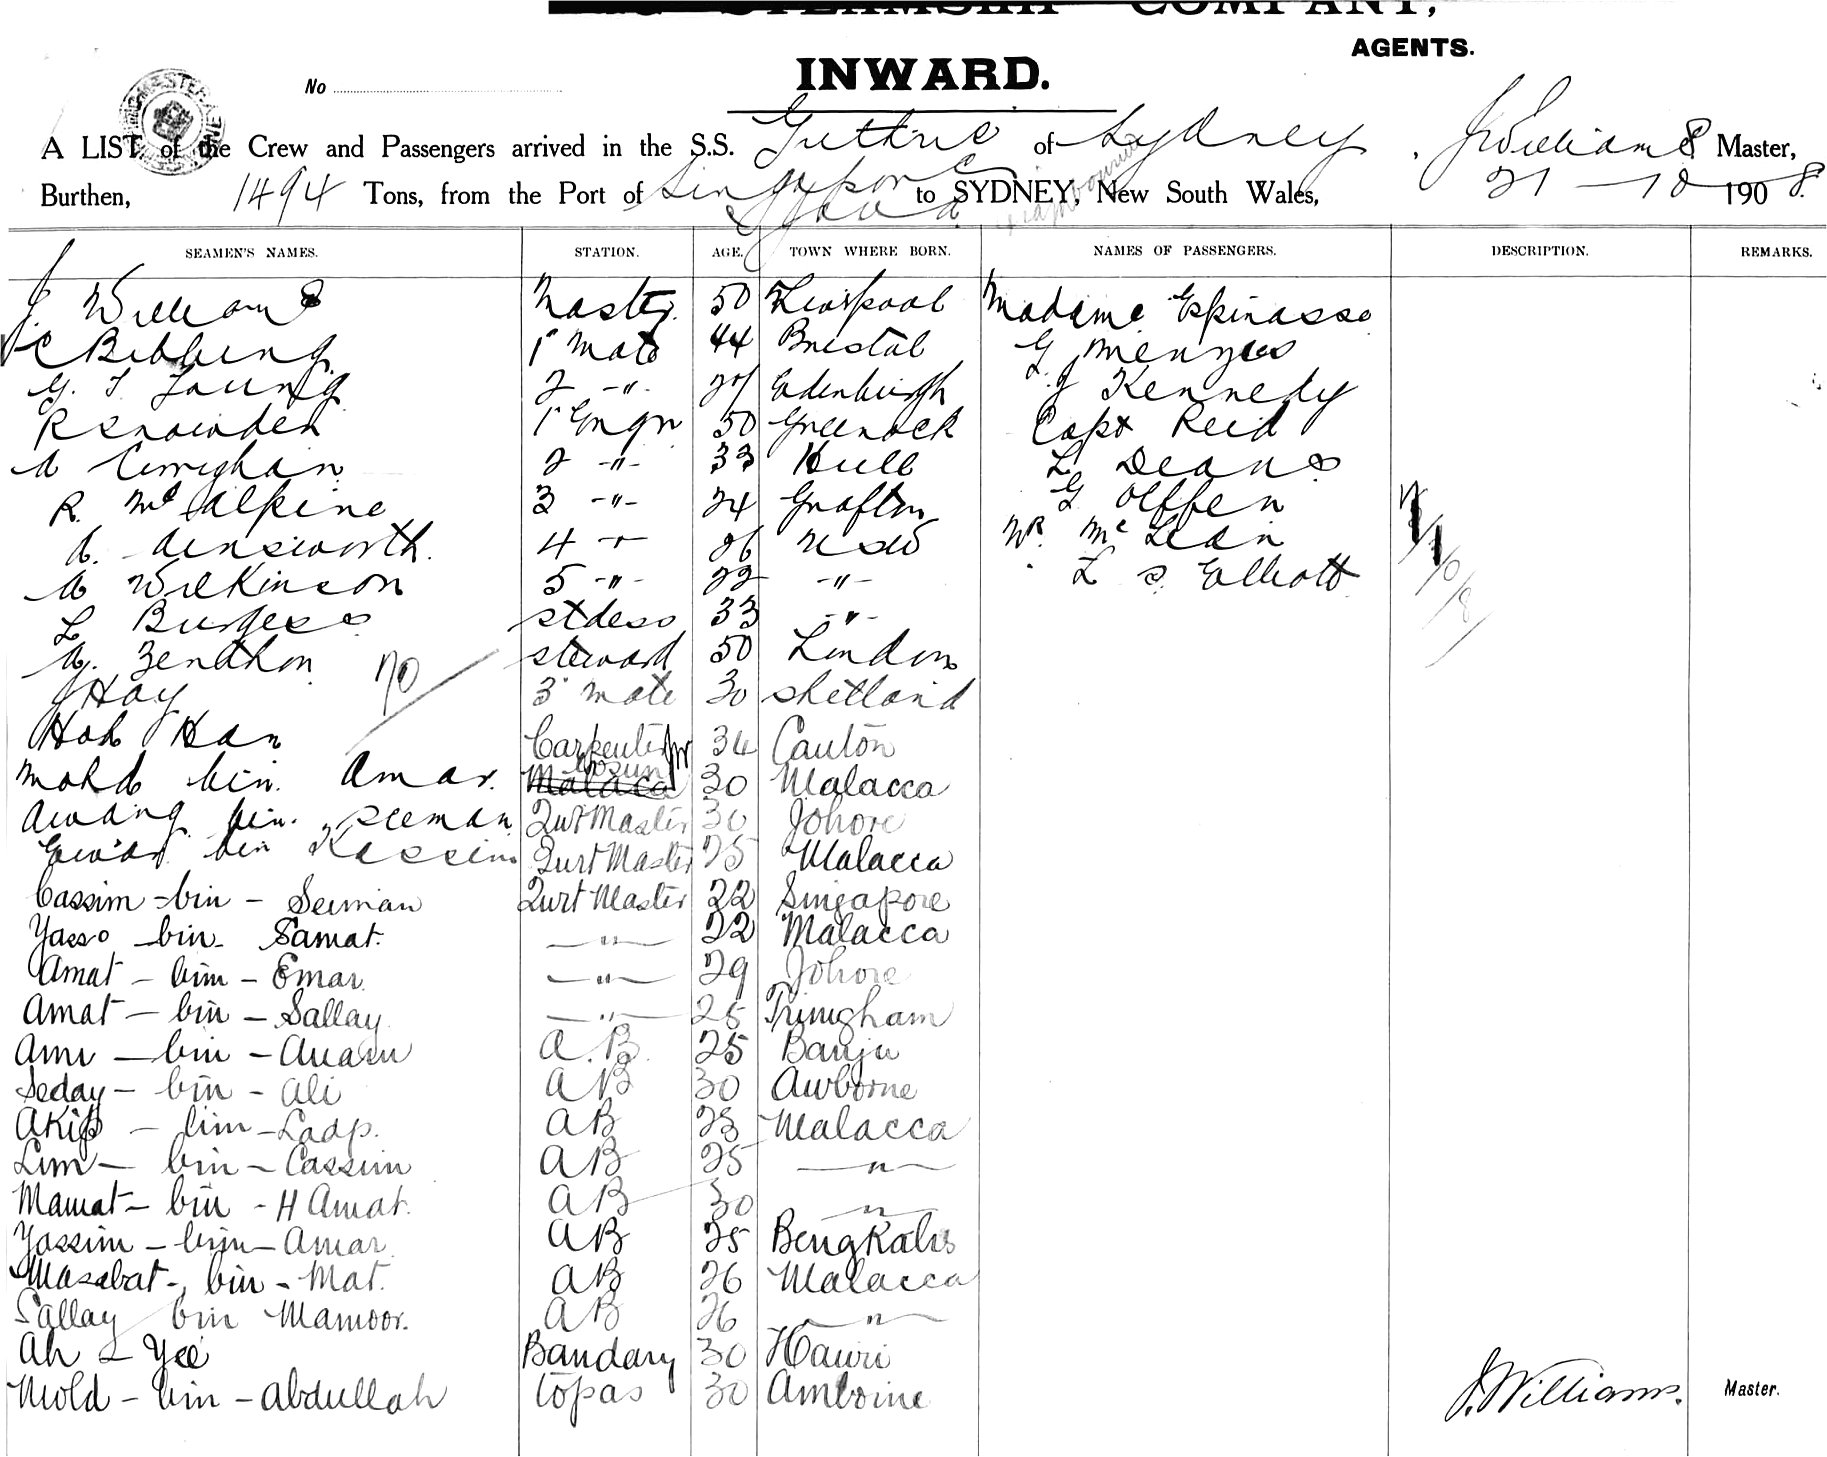 STEAMSHIP COMPANY,
AGENTS.
INWARD.
No
A LIST of the Crew and Passengers arrived in the S.S. Guthrie of Sydney, J Williams Master,
Burthen, 1494 Tons, from the Port of Singapore & Java to SYDNEY, New South Wales, 21-10-1908.
SEAMEN'S NAMES. STATION. AGE. TOWN WHERE BORN. NAMES OF PASSENGERS. DESCRIPTION. REMARKS.
J Williams Master 50 Liverpool Madame Espinasse
C Bibbing 1 Mate 44 Bristol G Menzies
G. T. Young 2 -"- Edenburgh J Kennedy
R Snowden 1 Engr 50 Greenock Capt Reid
A Cirrighan 2 -"- 33 Hull L Deans
R. McAlpine 3 -"- 24 Grafton G Olffen
A. Ainsworth. 4 26 NSW Wm McLean
A Wilkinson 5 -"- 22 -"- L S. Elliott
L Burgess stdess 33 -"-
A. Zenthon steward 50 London
J Hay 3 mate 30 Shetland
Hok Han Carpenter 34 Canton
Mohd bin. Amar. Malaca Bosun 30 Malacca
Awang bin. Seeman Qurt Master 30 Johore
bin Kassim Qurt Master 25 Malacca
Cassim - bin - Seiman Qurt Master 22 Singapore
Yasso - bin - Samat. -"- 22 Malacca
Amat - bin - Emar. -"- 29 Johore
Amat - bin - Sallay -"- 25 Tringham
Amr - bin - A.B. 25 Banju
Seday - bin - Ali AB 30 Awborne
Akip - bin - Ladp. AB 23 Malacca
Lim - bin - Cassim AB 25 -"-
Mamat - bin - H Amat. AB 30 -"-
Yassim - bin - Amar AB 25 Bengkalis
Masabat - bin - Mat. AB 26 Malacca
Sallay bin Mamoor. AB 26 -"-
Ah - Yee Bandary 30
Mold - bin - Abdullah topas 30 Amboine
J. Williams. Master.